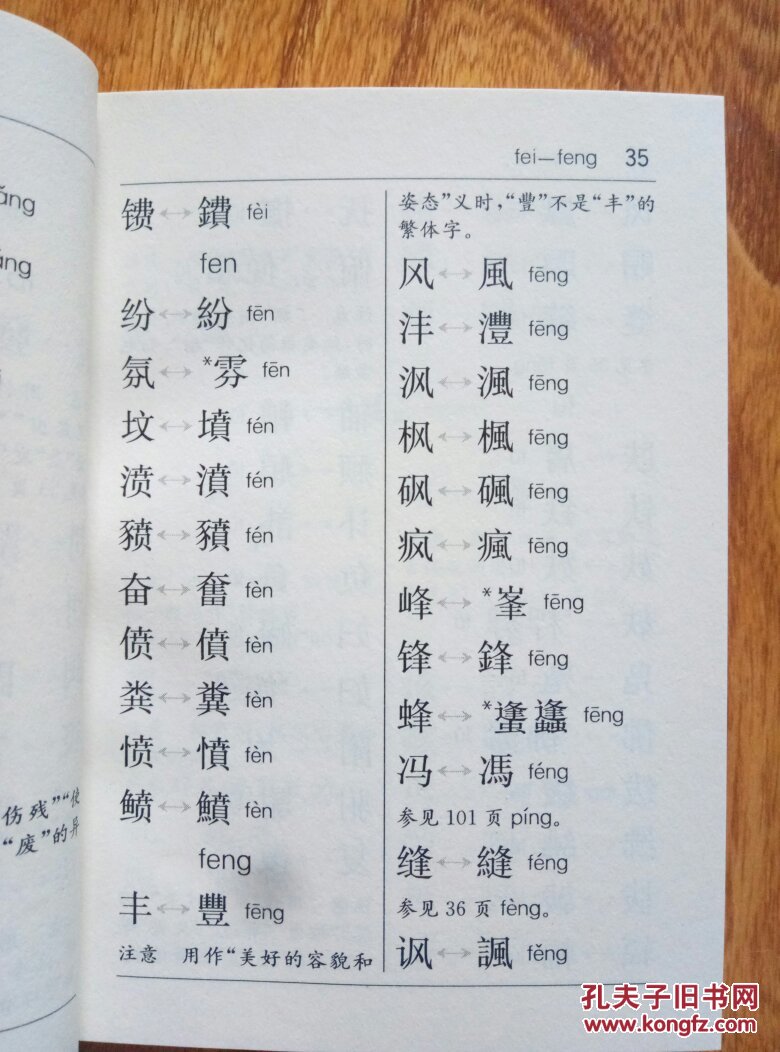 ǎng
áng
伤残”“使
“废”的异
fei—feng 35
镄↔鐨 fèi
fen
纷↔紛 fēn
氛↔*雰 fēn
坟↔墳 fén
渍↔濆 fén
豮↔豶 fén
奋↔奮 fèn
偾↔僨 fèn
粪↔糞 fèn
愤↔憤 fèn
鲼↔鱝 fèn
feng
丰↔豐 fēng
注意 用作“美好的容貌和
姿态”义时，“豐”不是“丰”的
繁体字。
风↔風 fēng
沣↔灃 fēng
沨↔渢 fēng
枫↔楓 fēng
砜↔碸 fēng
疯↔瘋 fēng
峰↔*峯 fēng
锋↔鋒 fēng
蜂↔*䗬蠭 fēng
冯↔馮 féng
参见 101 页 píng。
缝↔縫 féng
参见 36 页 fèng。
讽↔諷 fěng
孔夫子旧书网
www.kongfz.com